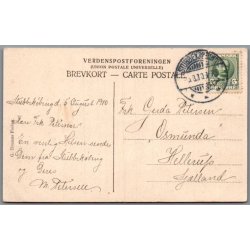 VERDENSPOSTFORENINGEN
(UNION POSTALE UNIVERSELLE)
BREVKORT - CARTE POSTALE
Stubbekøbing d. 5 August 1910
Kære Frk Petersen
En venlig Hilsen sendes
Dem fra Stubbekøbing
og Deres
M. Petersen
Frk. Gerda Petersen
Osmunda
Hellerup
Sjælland